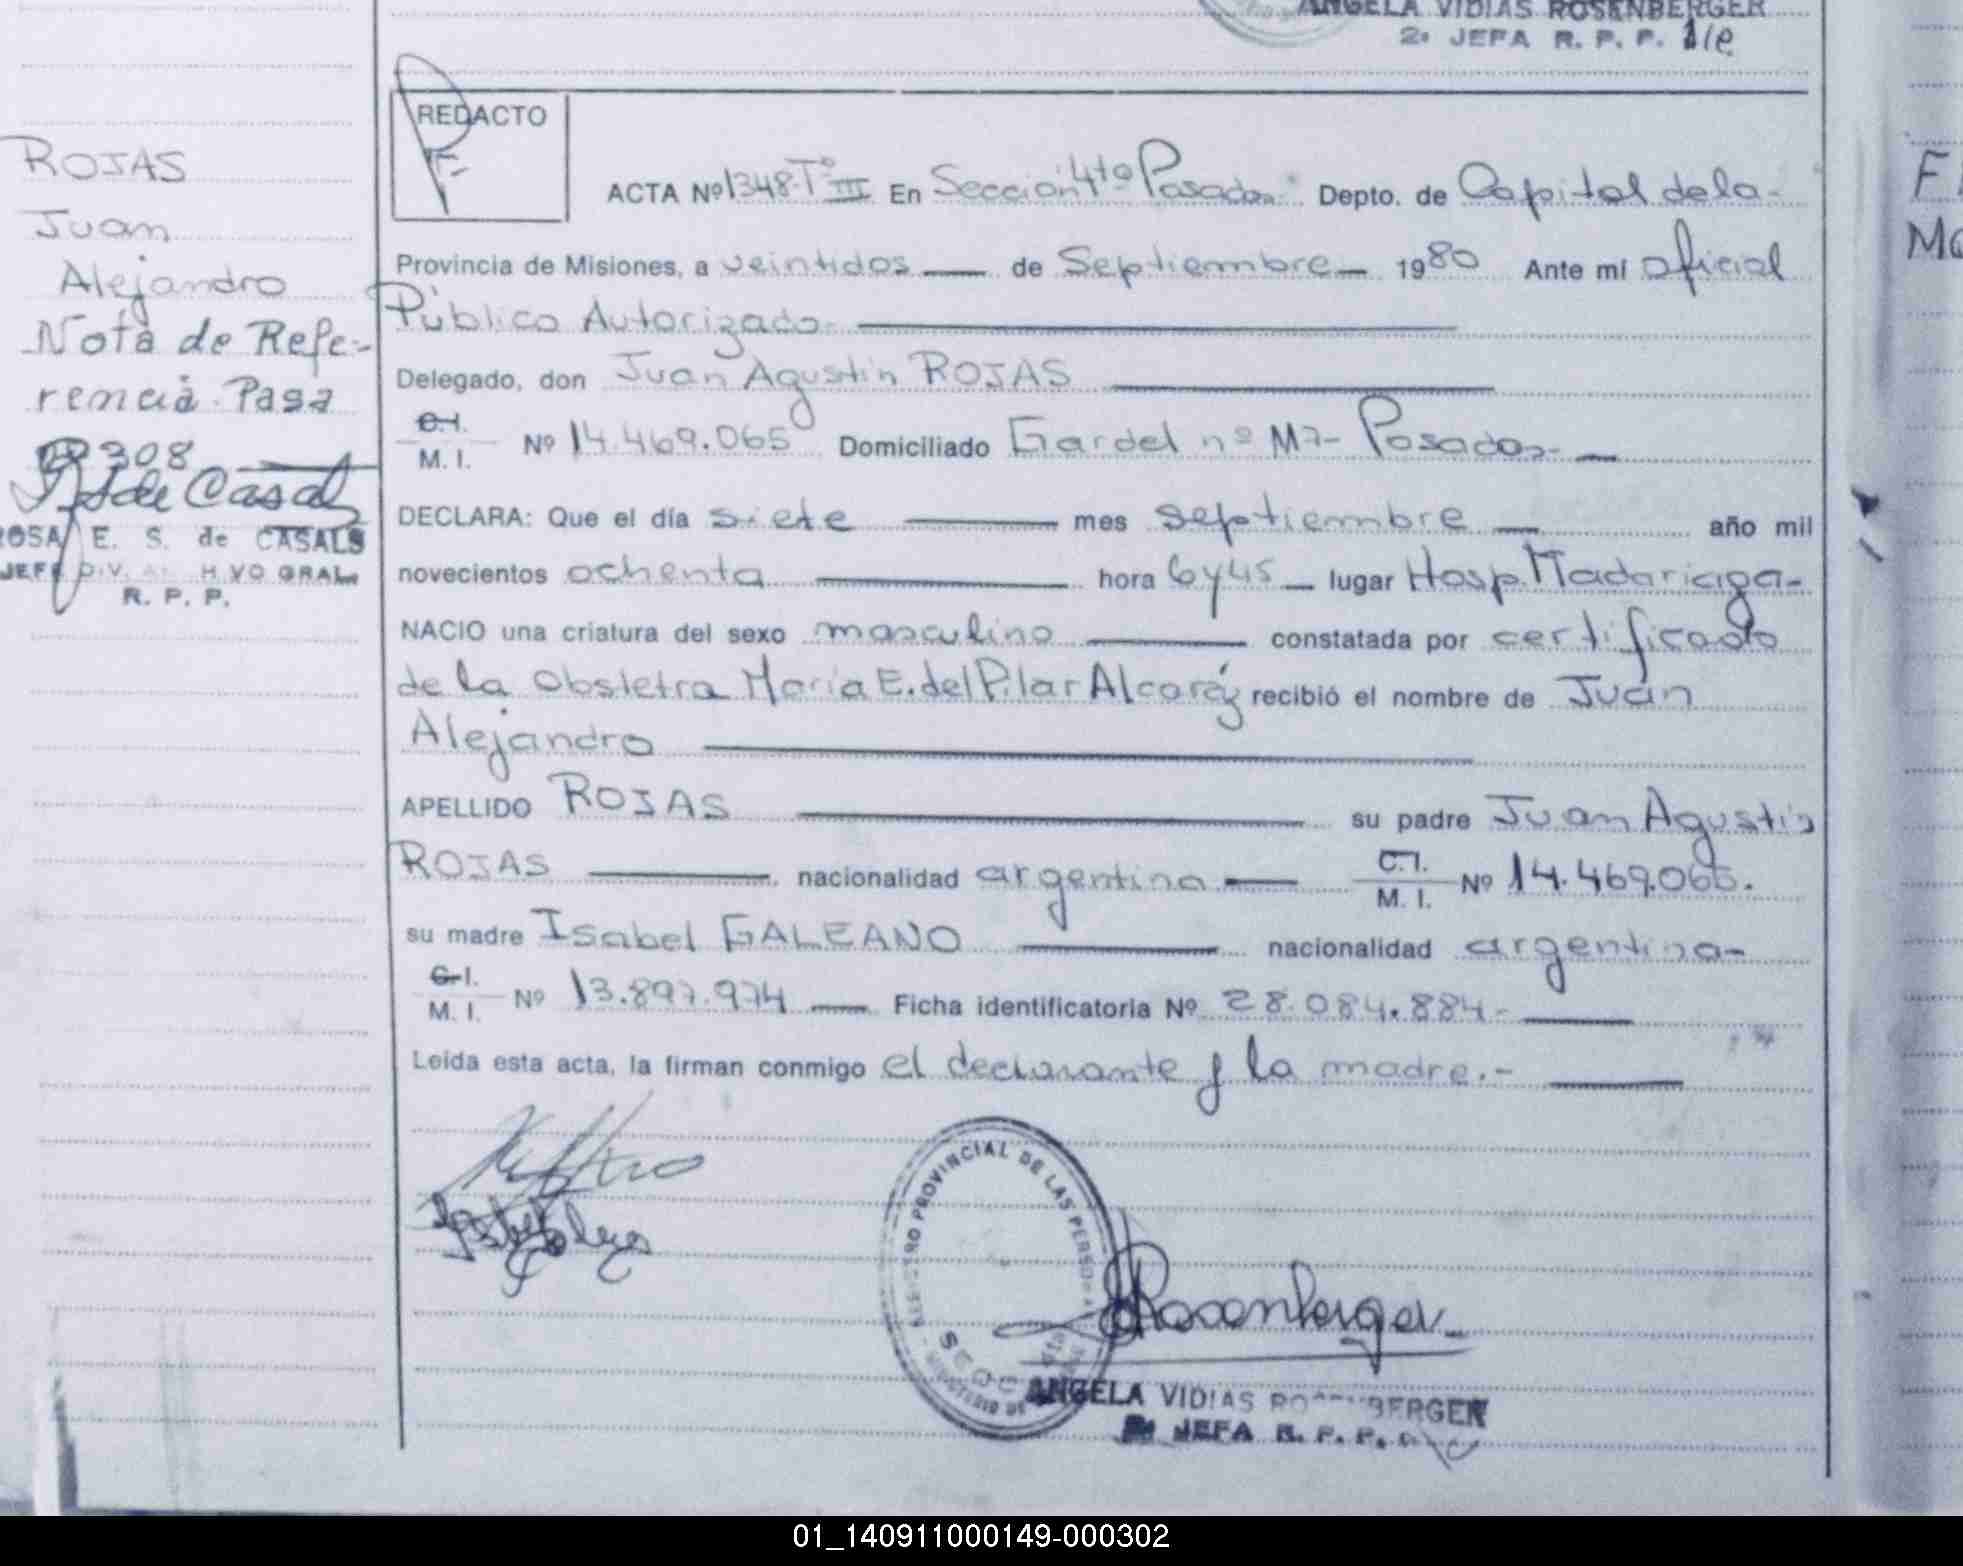 ANGELA VIDIAS ROSENBERGER
2º JEFA R. P. P.
REDACTO
ROJAS
Juan
Alejandro
Nota de Refe-
rencia Pasa
308
ROSA E. S. de CASALS
JEFE DIV. HIVO GRAL.
R. P. P.
ACTA Nº 1348-Tº III En Sección 4ta Posadas Depto. de Capital de la-
Provincia de Misiones, a veintidos de Septiembre 1980 Ante mí Oficial
Público Autorizado
Delegado, don Juan Agustin ROJAS
C.I. M. I. Nº 14.469.065 Domiciliado Gardel nº M7- Posadas-
DECLARA: Que el día siete mes septiembre año mil
novecientos ochenta hora 6y45 lugar Hosp. Madariaga-
NACIO una criatura del sexo masculino constatada por certificado
de la Obstetra María E. del Pilar Alcaráz recibió el nombre de Juan
Alejandro
APELLIDO ROJAS su padre Juan Agustin
ROJAS nacionalidad argentina C.I. M. I. Nº 14.469.065.
su madre Isabel GALEANO nacionalidad argentina-
C.I. M. I. Nº 13.897.974 Ficha identificatoria Nº 28.084.884-
Leída esta acta, la firman conmigo el declarante y la madre.-
REGISTRO PROVINCIAL DE LAS PERSONAS
Rosenberger
ANGELA VIDIAS ROSENBERGER
JEFA R. P. P.
01_140911000149-000302